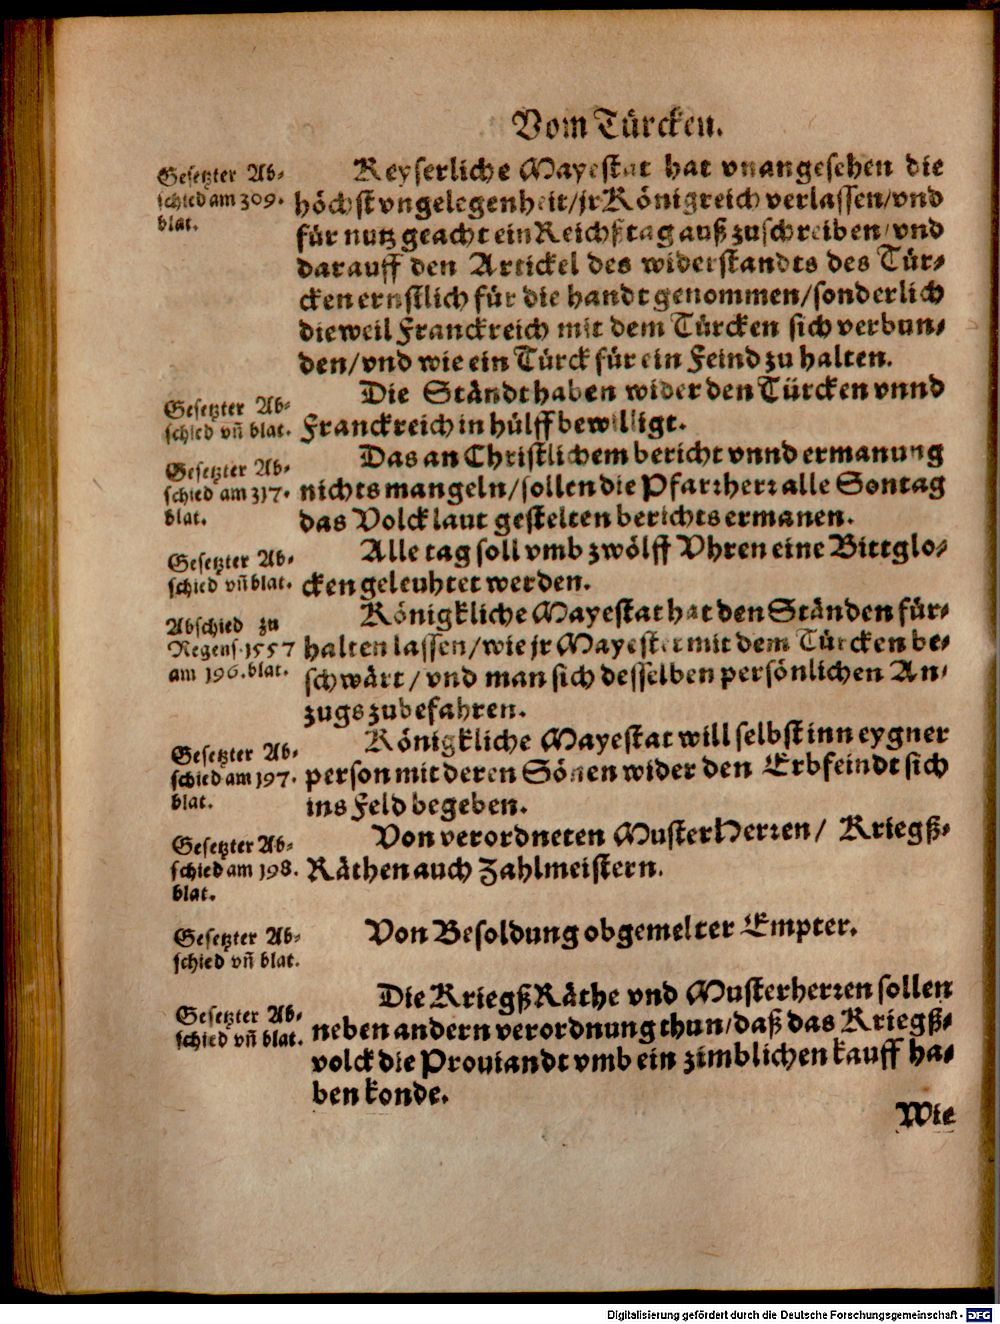 Vom Türcken.
Gesetzter Ab⸗
schied am 309.
blat.
Keyserliche Mayestat hat vnangesehen die
höchst vngelegenheit/jr Königreich verlassen/vnd
für nutz geacht ein Reichßtag auß zuschreiben/vnd
darauff den Artickel des widerstandts des Tür⸗
cken ernstlich für die handt genommen/sonderlich
dieweil Franckreich mit dem Türcken sich verbun⸗
den/vnd wie ein Türck für ein Feind zu halten.
Gesetzter Ab⸗
schied vñ blat.
Die Ständt haben wider den Türcken vnnd
Franckreich in hülff bewilligt.
Gesetzter Ab⸗
schied am 317.
blat.
Das an Christlichem bericht vnnd ermanung
nichts mangeln/sollen die Pfarꝛherꝛ alle Sontag
das Volck laut gestelten berichts ermanen.
Gesetzter Ab⸗
schied vñ blat.
Alle tag soll vmb zwölff Vhren eine Bittglo⸗
cken geleuhtet werden.
Abschied zu
Regens. 1557
am 196. blat.
Königkliche Mayestat hat den Ständen für⸗
halten lassen/wie jr Mayestet mit dem Türcken be⸗
schwärt/vnd man sich desselben persönlichen An⸗
zugs zubefahren.
Gesetzter Ab⸗
schied am 197.
blat.
Königkliche Mayestat will selbst inn eygner
person mit deren Sönen wider den Erbfeindt sich
ins Feld begeben.
Gesetzter Ab⸗
schied am 198.
blat.
Von verordneten MusterHerꝛen/ Kriegß⸗
Räthen auch Zahlmeistern.
Gesetzter Ab⸗
schied vñ blat.
Von Besoldung obgemelter Empter.
Gesetzter Ab⸗
schied vñ blat.
Die KriegßRäthe vnd Musterherꝛen sollen
neben andern verordnung thun/daß das Kriegß⸗
volck die Prouiandt vmb ein zimblichen kauff ha⸗
ben konde.
Wie
Digitalisierung gefördert durch die Deutsche Forschungsgemeinschaft - DFG